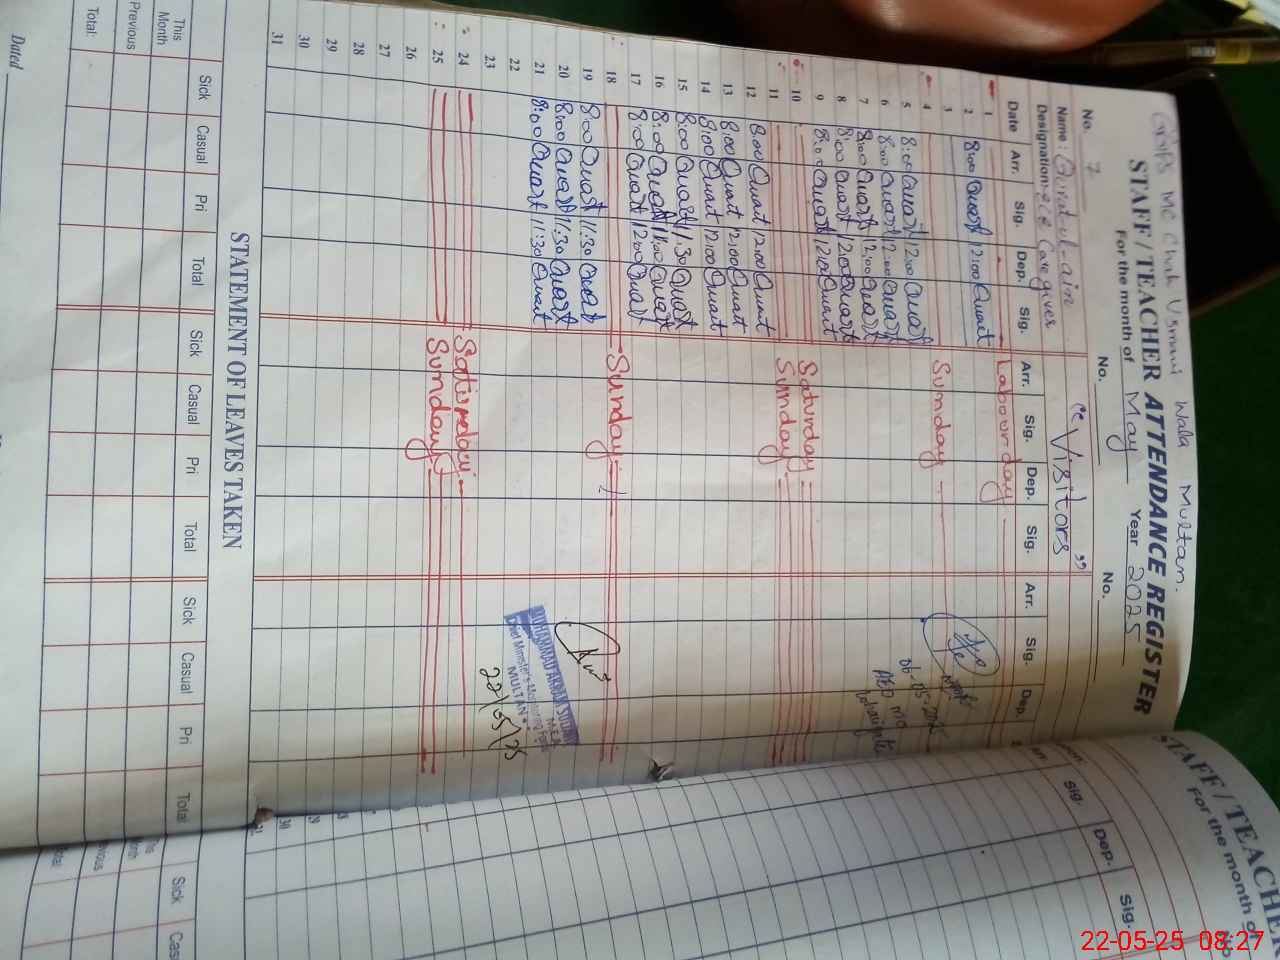 GGPS MC Chak Usmani Wala Multan.
STAFF / TEACHER ATTENDANCE REGISTER
For the month of May Year 2025
No. 7 No. No.
Name : Qurat-ul-ain "Visitors"
Designation: ECE Care giver
Date Arr. Sig. Dep. Sig. Arr. Sig. Dep. Sig. Arr. Sig. Dep.
1 Labour day
2 8:00 Qurat 12:00 Qurat
3
4 Sunday
5 8:00 Qurat 12:00 Qurat
6 8:00 Qurat 12:00 Qurat 06-05-2025
7 8:00 Qurat 12:00 Qurat AEO mc
8 8:00 Qurat 12:00 Qurat
9 8:00 Qurat 12:00 Qurat
10 Saturday
11 Sunday
12 8:00 Qurat 12:00 Qurat
13 8:00 Qurat 12:00 Qurat
14 8:00 Qurat 12:00 Qurat
15 8:00 Qurat 11:30 Qurat
16 8:00 Qurat 11:00 Qurat
17 8:00 Qurat 12:00 Qurat
18 Sunday
19 8:00 Qurat 11:30 Qurat
20 8:00 Qurat 11:30 Qurat
21 8:00 Qurat 11:30 Qurat
MUHAMMAD AKRAM
M.E.A
Chief Minister's Monitoring Force
MULTAN
22/05/25
22
23
24 Saturday
25 Sunday
26
27
28
29
30
31
STATEMENT OF LEAVES TAKEN
Sick Casual Pri Total Sick Casual Pri Total Sick Casual Pri Total
This Month
Previous
Total:
Dated
STAFF / TEACHER
For the month of
No.
Sig. Dep. Sig.
29
30
31
Sick
22-05-25 08:27